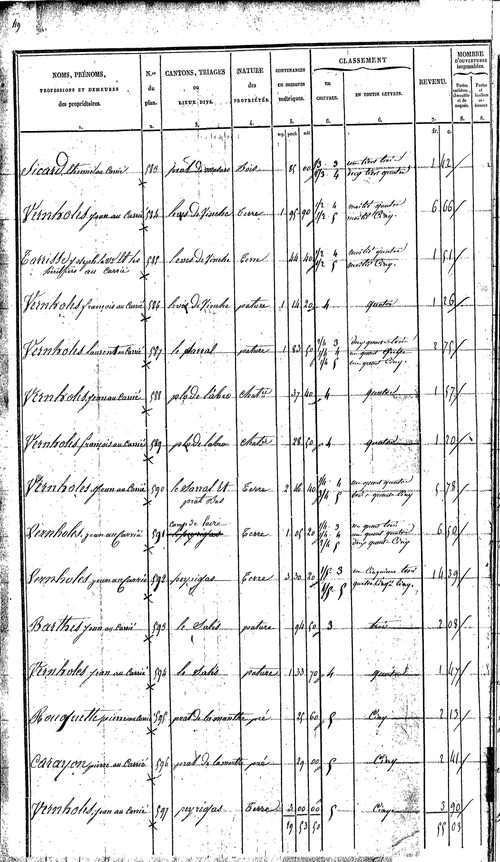 49
NOMS, PRÉNOMS,
PROFESSIONS ET DEMEURES
des propriétaires.
N.os
du
plan.
CANTONS, TRIAGES
ou
LIEUX DITS.
NATURE
des
PROPRIÉTÉS.
CONTENANCES
en mesures
métriques.
CLASSEMENT
en
CHIFFRES.
EN TOUTES LETTRES.
REVENU.
NOMBRE
D'OUVERTURES
imposables.
1. 2. 3. 4. 5. 6. 6. 7. 8. 8.
arp. perch. mèt. fr. c.
Sicard au Carrié 583 Bois 85 00 1/3 3 un tiers trois 1 42
2/3 4 deux tiers quatre
Vernholes Jean au Carrié 584 terre 1 95 90 1/2 4 moitié quatre 6 66
1/2 5 moitié cinq
Tarrisse Joseph et les 585 terre 44 40 1/2 4 moitié quatre 1 51
au Carrié 1/2 5 moitié cinq
Vernholes françois au Carrié 586 pature 1 14 20 4 quatre 1 26
Vernholes laurent au Carrié 587 le Sanal pature 1 83 50 2/4 3 deux quarts trois 2 75
1/4 4 un quart quatre
1/4 5 un quart cinq
Vernholes jean au Carrié 588 plo de labro Chat.s 37 40 4 quatre 1 57
Vernholes françois au Carrié 589 plo de labro Chat.s 28 50 4 quatre 1 20
Vernholes Jean au Carrié 590 le Sanal et Terre 2 46 40 1/4 4 un quart quatre 5 78
prat Bas 3/4 5 trois quarts cinq
Vernholes, jean au Carrié 591 camp de Terre 1 05 20 1/4 3 un quart trois 6 50
peyrigas 1/4 4 un quart quatre
2/4 5 deux quarts cinq
Vernholes jean au Carrié 592 peyrigas Terre 3 30 20 1/5 3 un cinquième trois 14 39
4/5 5 quatre cinq.es cinq
Barthes Jean au Carrié 593 le Salés pature 94 50 3 trois 2 08
Vernholes jean au Carrié 594 le Salés pature 1 33 70 4 quatre 1 47
Rouquette pierre au Carrié 595 prat de lamonthe pré 25 60 5 Cinq 2 13
Carayon pierre au Carrié 596 prat de lamonthe pré 29 00 5 Cinq 2 41
Vernholes, Jean au Carrié 597 peyrigas Terre 3 00 00 5 Cinq 3 90
19 53 50 55 03